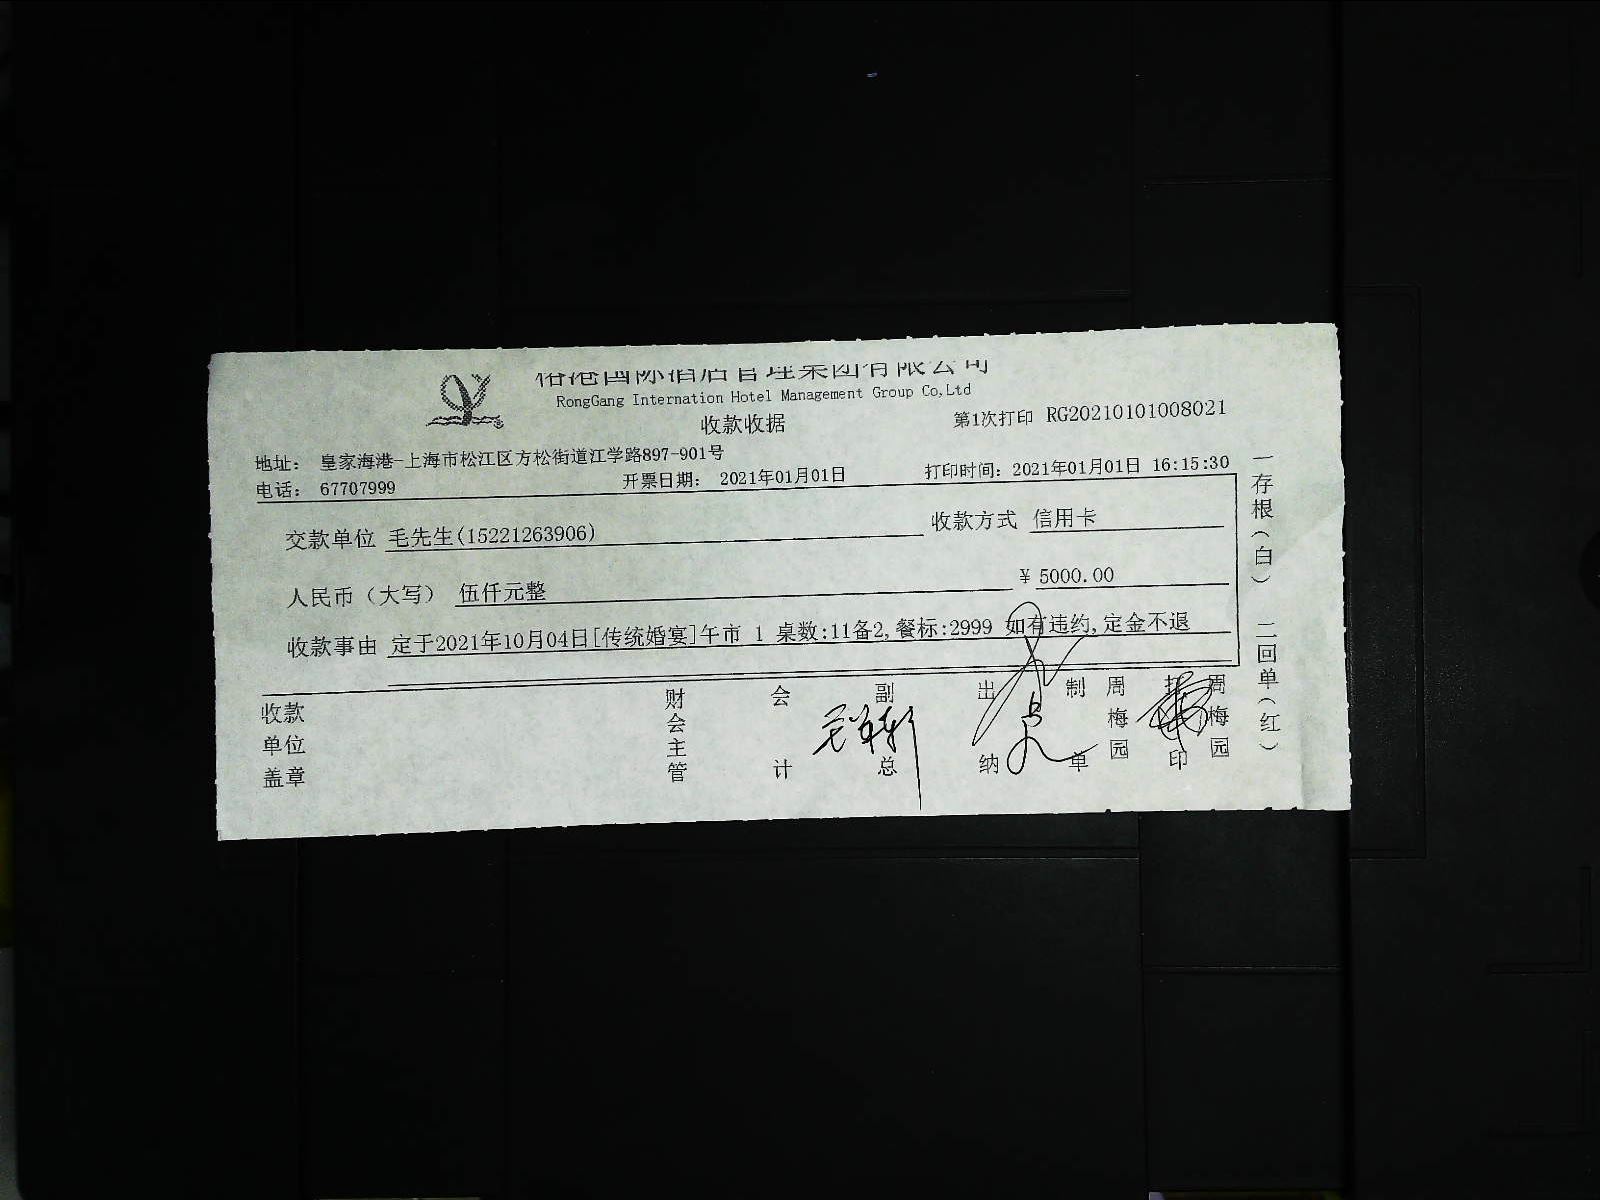 国际酒店管理集团有限公司
RongGang Internation Hotel Management Group Co,Ltd
收款收据
第1次打印 RG20210101008021
地址: 皇家海港-上海市松江区方松街道江学路897-901号
电话: 67707999 开票日期: 2021年01月01日 打印时间: 2021年01月01日 16:15:30
交款单位 毛先生(15221263906) 收款方式 信用卡
人民币(大写) 伍仟元整 ¥ 5000.00
收款事由 定于2021年10月04日[传统婚宴]午市 1 桌数:11备2,餐标:2999 如有违约,定金不退
收款单位盖章
财会主管
会计
副总
出纳
制单
周梅园
打印
周梅园
一存根(白)
二回单(红)